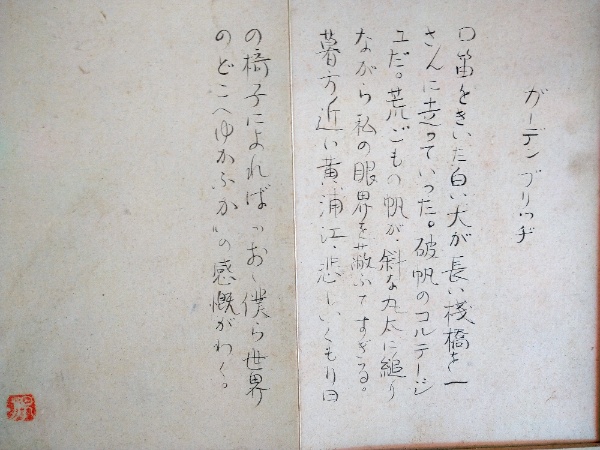 ガーデン ブリッヂ
口笛をきいた白い犬が長い棧橋を一
さんに走っていった。破帆のコルテージ
ユだ。荒ごもの帆が、斜な丸太に縋り
ながら私の眼界を蔽ふてすぎる。
暮方近い黄浦江、悲しいくもり日
の椅子によれば〝おゝ僕ら世界
のどこへゆかふか〟の感慨がわく。